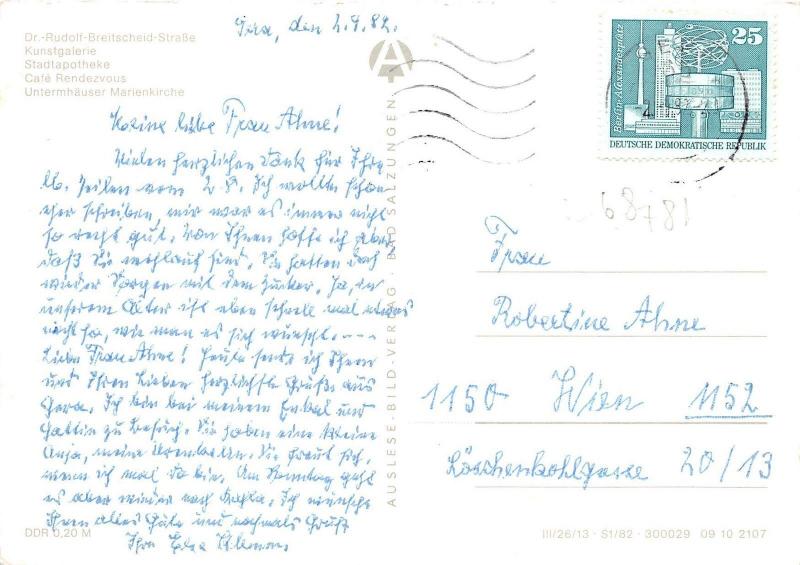 Dr.-Rudolf-Breitscheid-Straße
Kunstgalerie
Stadtapotheke
Café Rendezvous
Untermhäuser Marienkirche
Gera, den 2.9.82.
Meine liebe Frau Ahne!
Vielen herzlichen Dank für Ihre
lb. Zeilen vom 2.8. Ich wollte schon
eher schreiben, mir war es immer nicht
so recht gut. Von Ihnen hoffe ich aber
daß Sie wohlauf sind. Sie hatten doch
wieder Sorgen mit dem Zucker. Ja, in
unserem Alter ist eben schnell mal etwas
nicht so, wie man es sich wünscht.---
Liebe Frau Ahne! Heute sende ich Ihnen
und Ihren Lieben herzlichste Grüße aus
Gera. Ich bin bei meinem Enkel und
Gattin zu Besuch. Sie haben eine kleine
Anja, meine Urenkelin. Sie freut sich,
wenn ich mal da bin. Am Sonntag geht
es aber wieder nach. Ich wünsche
Ihnen alles Gute und nochmals Gruß
Ihre Elsa
DDR 0,20 M
AUSLESE-BILD-VERLAG · BAD SALZUNGEN
Berlin-Alexanderplatz
25
DEUTSCHE DEMOKRATISCHE REPUBLIK
68781
Frau
Robertine Ahne
1150 Wien 1152
Löschenkohlgasse 20/13
III/26/13 · S1/82 · 300029 09 10 2107